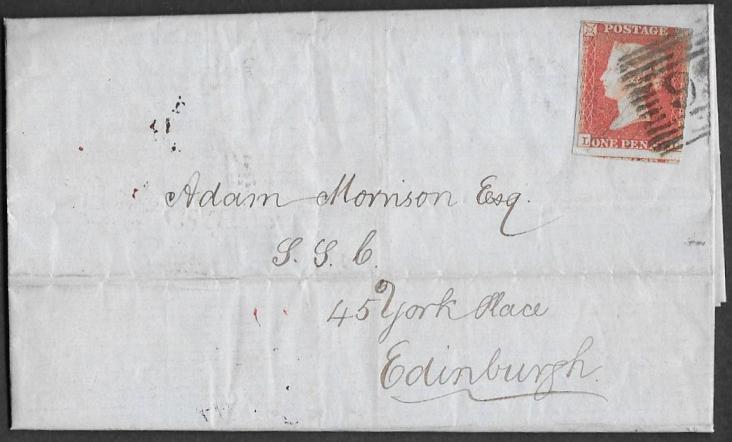 POSTAGE
L ONE PEN
Adam Morrison Esq.
S. S. C.
45 York Place
Edinburgh.